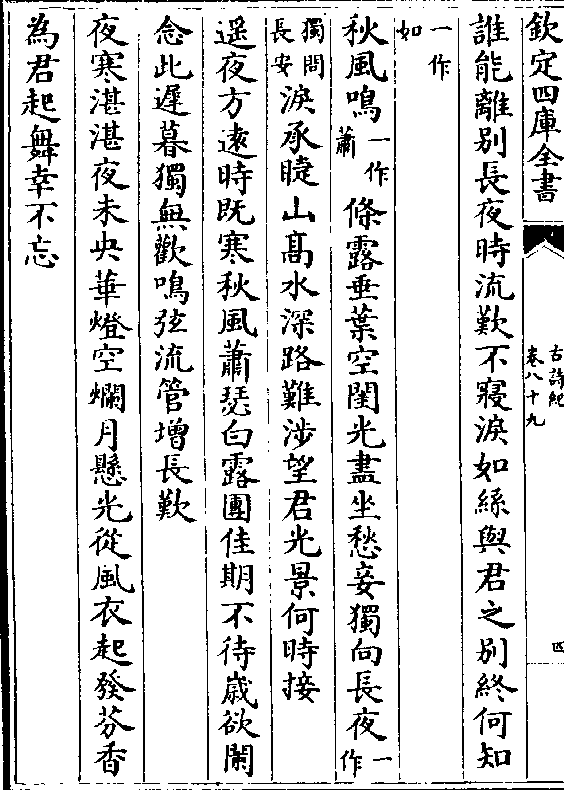 欽定四庫全書
古詩紀
卷八十九
四
誰能離別長夜時流歎不寢淚如絲與君之別終何知
一作如
秋風鳴一作蕭條露垂葉空閨光盡坐愁妾獨向長夜一作
獨問長安淚承睫山髙水深路難涉望君光景何時接
遥夜方遠時既寒秋風蕭瑟白露團佳期不待歳欲闌
念此遲暮獨無歡鳴弦流管增長歎
夜寒湛湛夜未央華燈空爛月懸光從風衣起發芬香
為君起舞幸不忘